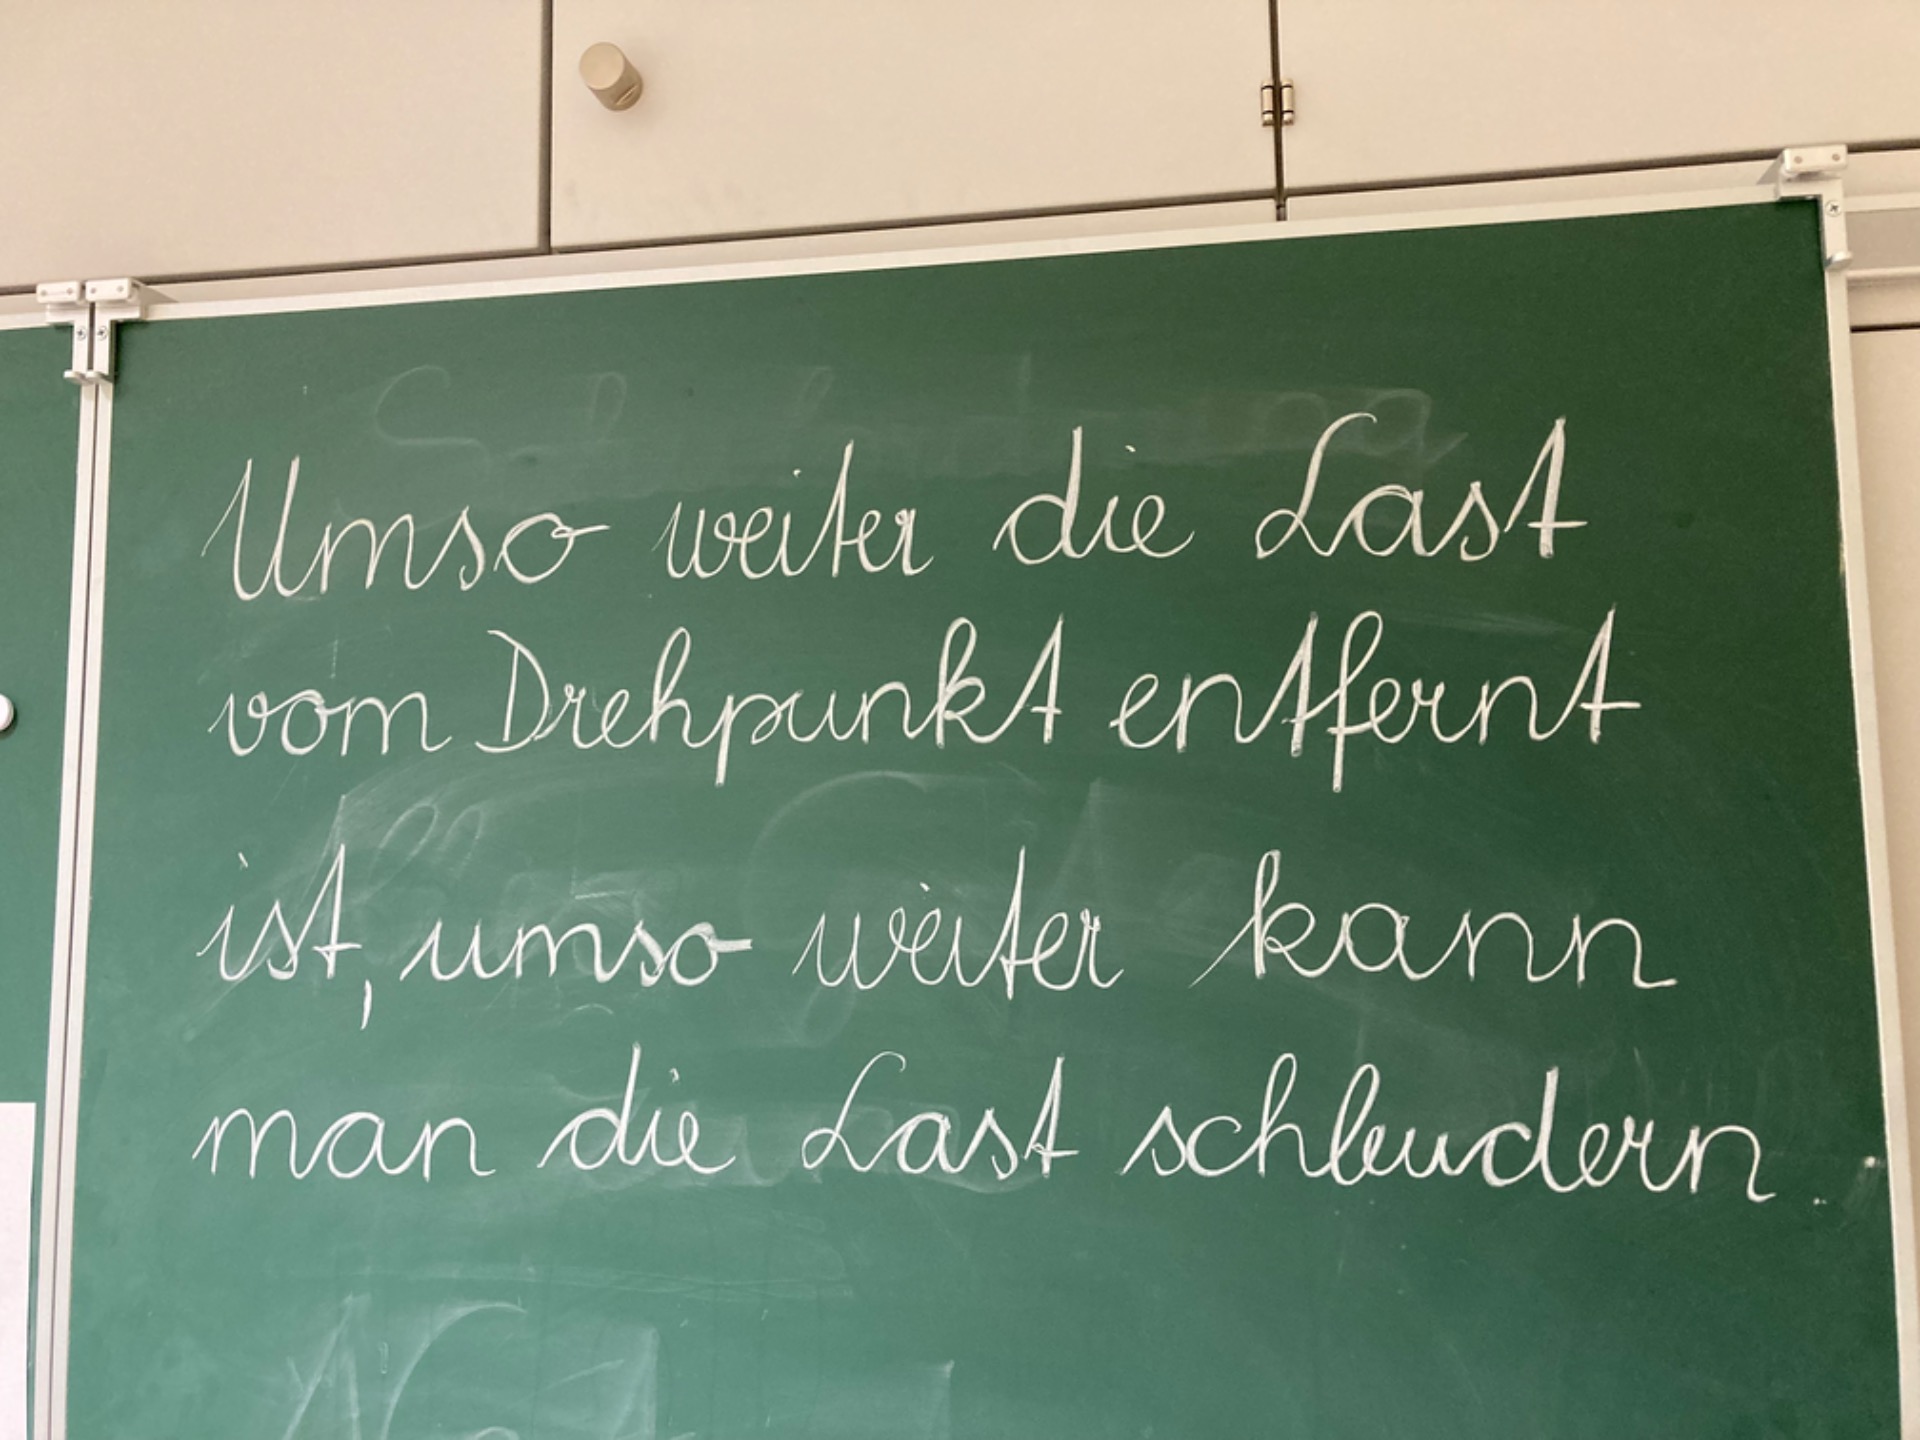 Umso weiter die Last
vom Drehpunkt entfernt
ist, umso weiter kann
man die Last schleudern.